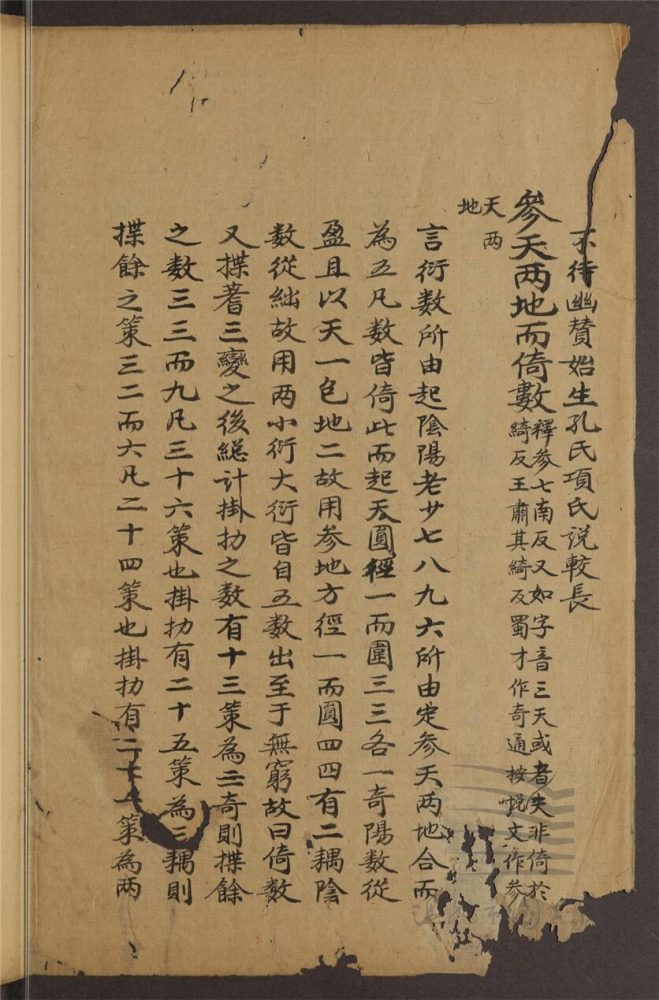 不待幽賛始生孔氏項氏説較長
參天两地而倚數釋參七南反又如字音三天或者失非倚於
綺反王肅其綺反蜀才作奇通按悦文作参
天两
地
言衍數所由起陰陽老少七八九六所由定参天两地合而
為五凡數皆倚此而起天圓經一而圍三三各一奇陽數從
盈且以天一包地二故用参地方徑一而圓四四有二耦陰
數從絀故用两小衍大衍皆自五數出至于無窮故曰倚數
又揲蓍三變之後總計掛扐之数有十三策為三奇則揲餘
之數三三而九凡三十六策也掛扐有二十五策為三耦則
揲餘之策三二而六凡二十四策也掛扐有二十策為两